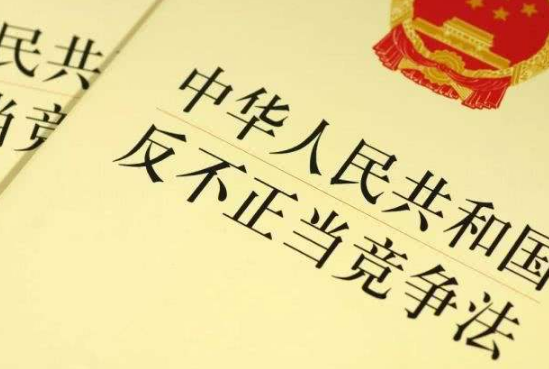 中华人民共和国
反不正当竞争法
民共
当竞